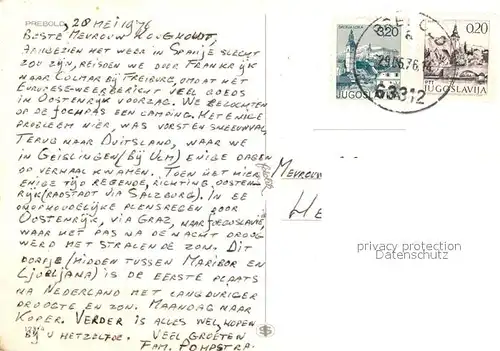 PREBOLD, 28 MEI 1976
BESTE MEVROUW
AANGEZIEN HET WEER IN SPANJE SLECHT
ZOU ZIJN, REISDEN WE DOOR FRANKRIJK
NAAR COLMAR BIJ FREIBURG, OMDAT HET
EUROPESE WEERBERICHT VEEL GOEDS
IN OOSTENRIJK VOORZAG. WE BEZOCHTEN
OP DE JOCHPAS EEN CAMPING. HET ENIGE
PROBLEEM HIER, WAS VORST EN SNEEUWVAL,
TERUG NAAR DUITSLAND, WAAR WE
IN GEISLINGEN (BIJ ULM) ENIGE DAGEN
OP VERHAAL KWAMEN. TOEN HET HIER
ENIGE TIJD REGENDE, RICHTING OOSTEN-
RIJK (RADSTADT VIA SALZBURG). IN EE
ONOPHOUDELIJKE PLENSREGEN DOOR
OOSTENRIJK, VIA GRAZ, NAAR JOEGOSLAVIË,
WAAR HET PAS NA DE NACHT DROOG
WERD MET STRALENDE ZON. DIT
DORPJE (MIDDEN TUSSEN MARIBOR EN
LJUBLJANA) IS DE EERSTE PLAATS
NA NEDERLAND MET LANGDURIGER
DROOGTE EN ZON. MAANDAG NAAR
KOPER. VERDER IS ALLES WEL, HOPEN
BIJ U HETZELFDE. VEEL GROETEN
FAM. POMPSTRA.
3.20
JUGOSLAVIJA
0.20
PTT
JUGOSLAVIJA
29.05.76
63312
MEVROUW
HE
privacy protection
Datenschutz